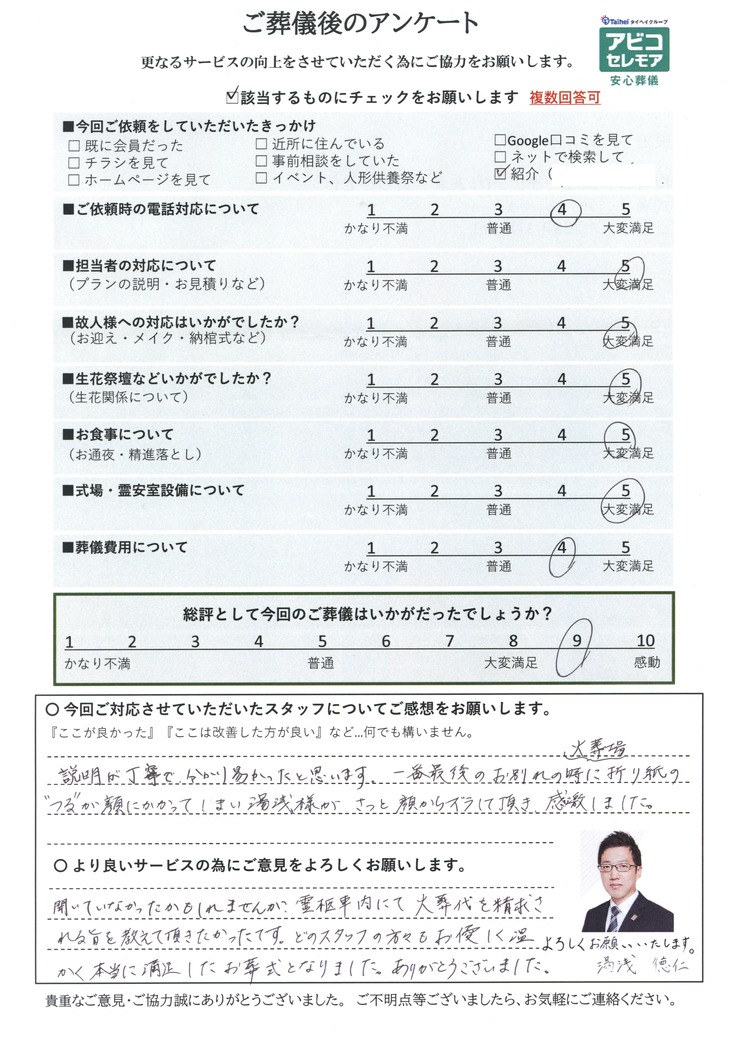 ご葬儀後のアンケート
Taihei タイヘイグループ
アビコ
セレモア
安心葬儀
更なるサービスの向上をさせていただく為にご協力をお願いします。
☑該当するものにチェックをお願いします 複数回答可
■今回ご依頼をしていただいたきっかけ
□ 既に会員だった □ 近所に住んでいる □Google口コミを見て
□ チラシを見て □ 事前相談をしていた □ ネットで検索して
□ ホームページを見て □ イベント、人形供養祭など ☑ 紹介（
■ご依頼時の電話対応について 1 2 3 4 5
かなり不満 普通 大変満足
■担当者の対応について 1 2 3 4 5
（プランの説明・お見積りなど） かなり不満 普通 大変満足
■故人様への対応はいかがでしたか？ 1 2 3 4 5
（お迎え・メイク・納棺式など） かなり不満 普通 大変満足
■生花祭壇などいかがでしたか？ 1 2 3 4 5
（生花関係について） かなり不満 普通 大変満足
■お食事について 1 2 3 4 5
（お通夜・精進落とし） かなり不満 普通 大変満足
■式場・霊安室設備について 1 2 3 4 5
かなり不満 普通 大変満足
■葬儀費用について 1 2 3 4 5
かなり不満 普通 大変満足
総評として今回のご葬儀はいかがだったでしょうか？
1 2 3 4 5 6 7 8 9 10
かなり不満 普通 大変満足 感動
〇 今回ご対応させていただいたスタッフについてご感想をお願いします。
『ここが良かった』『ここは改善した方が良い』など...何でも構いません。
火葬場
説明が丁寧で、分かり易かったと思います。一番最後のお別れの時に折り紙の
"つる"が顔にかかってしまい湯浅様が、さっと顔からズラして頂き、感激しました。
〇 より良いサービスの為にご意見をよろしくお願いします。
聞いていなかったかもしれませんが、霊柩車内にて火葬代を精求さ
れる旨を教えて頂きたかったです。どのスタッフの方々もお優しく温
かく本当に満足したお葬式となりました。ありがとうございました。
よろしくお願いいたします。
湯浅 徳仁
貴重なご意見・ご協力誠にありがとうございました。 ご不明点等ございましたら、お気軽にご連絡ください。